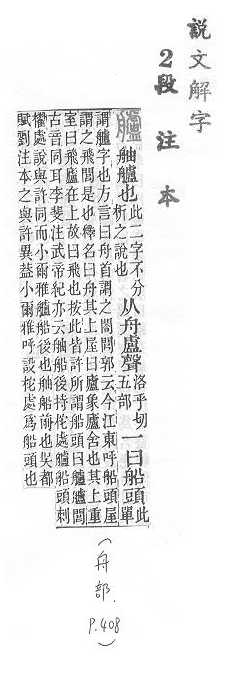 說文解字
2段注本
艫 舳艫也此二字不分析之說也从舟盧聲洛乎切五部一曰船頭此單
謂艫字也方言曰舟首謂之閤閭郭云今江東呼船頭屋
謂之飛閭是也釋名曰舟其上屋曰廬象廬舍也其上重
室曰飛廬在上故曰飛也按此皆許所謂船頭曰艫艫閭
古音同耳李斐注武帝紀亦云舳船後持柂處艫船頭刺
櫂處說與許同而小爾雅艫船後也舳船前也吳都
賦劉注本之與許異蓋小爾雅呼設柂處爲船頭也
(舟部、P.408)